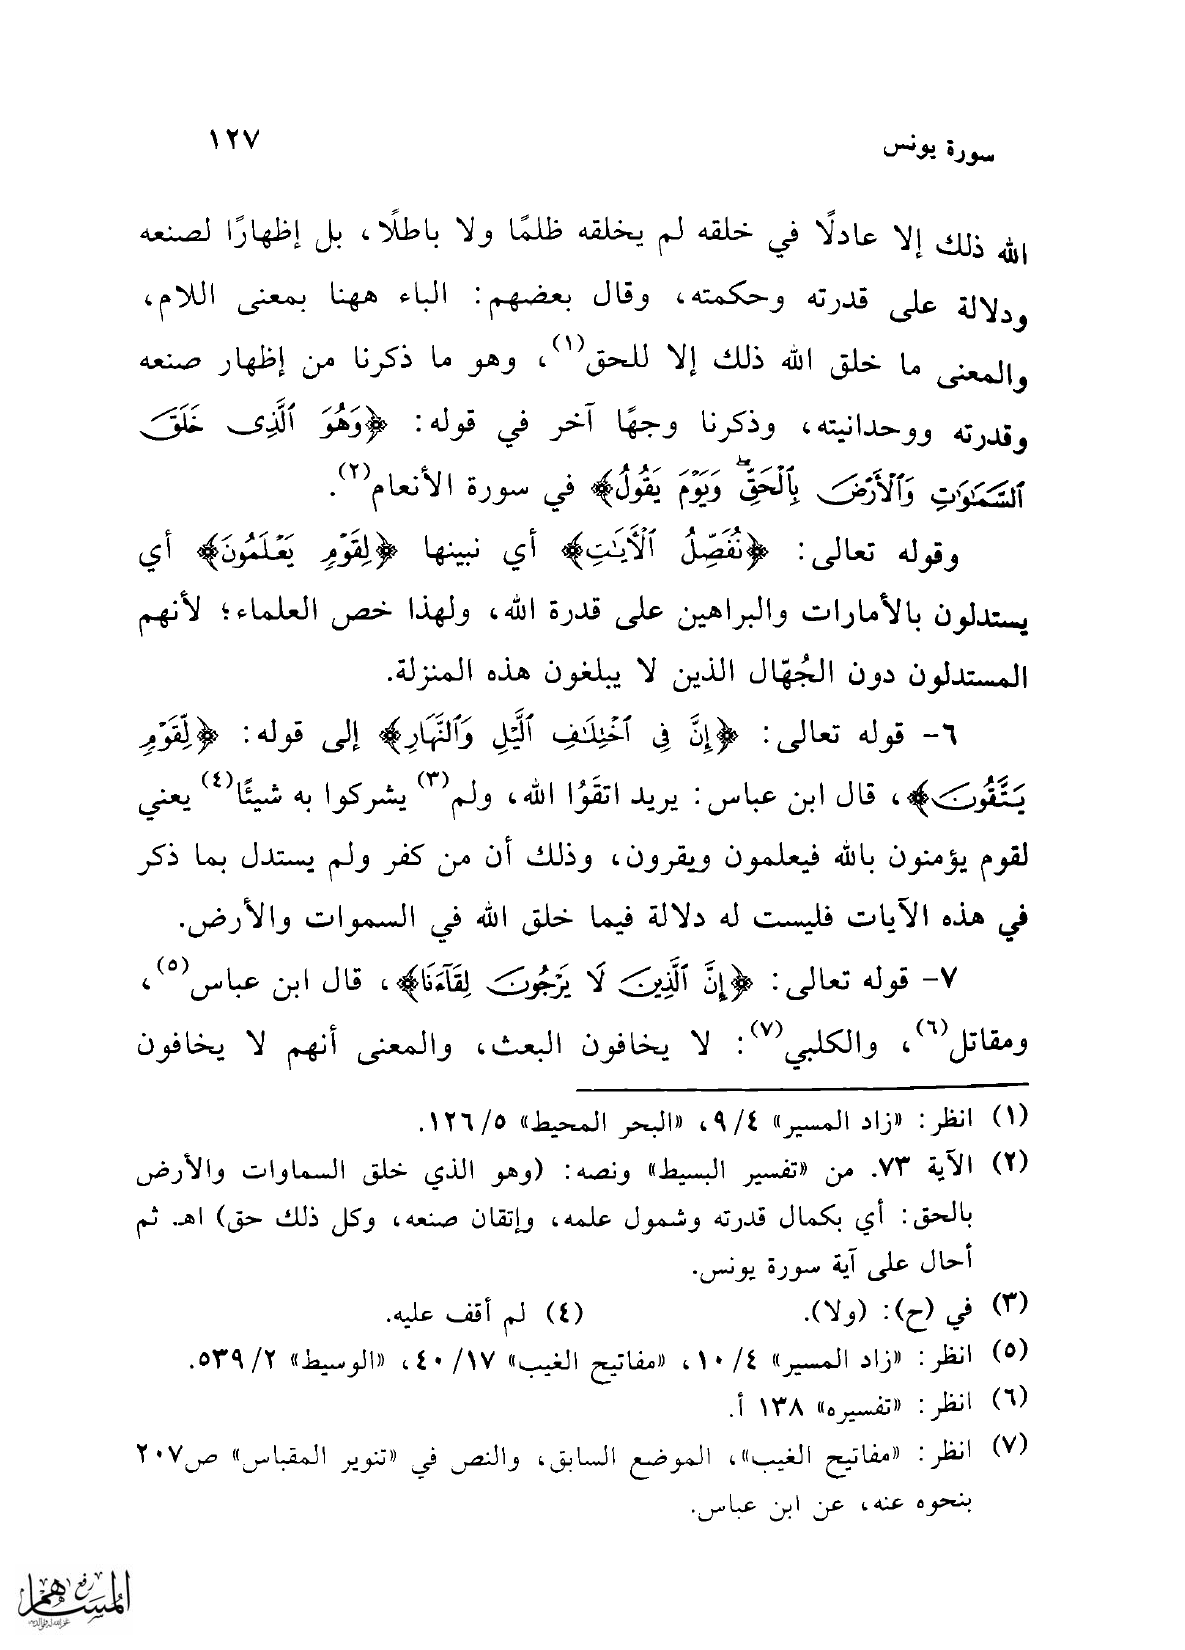 سورة يونس ١٢٧
الله ذلك إلا عادلًا في خلقه لم يخلقه ظلمًا ولا باطلًا، بل إظهارًا لصنعه
ودلالة على قدرته وحكمته، وقال بعضهم: الباء ههنا بمعنى اللام،
والمعنى ما خلق الله ذلك إلا للحق(١)، وهو ما ذكرنا من إظهار صنعه
وقدرته ووحدانيته، وذكرنا وجهًا آخر في قوله: ﴿وَهُوَ ٱلَّذِى خَلَقَ
ٱلسَّمَٰوَٰتِ وَٱلْأَرْضَ بِٱلْحَقِّۖ وَيَوْمَ يَقُولُ﴾ في سورة الأنعام(٢).
وقوله تعالى: ﴿نُفَصِّلُ ٱلْأَيَٰتِ﴾ أي نبينها ﴿لِقَوْمٍ يَعْلَمُونَ﴾ أي
يستدلون بالأمارات والبراهين على قدرة الله، ولهذا خص العلماء؛ لأنهم
المستدلون دون الجُهّال الذين لا يبلغون هذه المنزلة.
٦- قوله تعالى: ﴿إِنَّ فِى ٱخْتِلَٰفِ ٱلَّيْلِ وَٱلنَّهَارِ﴾ إلى قوله: ﴿لِّقَوْمٍ
يَتَّقُونَ﴾، قال ابن عباس: يريد اتقَوُا الله، ولم(٣) يشركوا به شيئًا(٤) يعني
لقوم يؤمنون بالله فيعلمون ويقرون، وذلك أن من كفر ولم يستدل بما ذكر
في هذه الآيات فليست له دلالة فيما خلق الله في السموات والأرض.
٧- قوله تعالى: ﴿إِنَّ ٱلَّذِينَ لَا يَرْجُونَ لِقَآءَنَا﴾، قال ابن عباس(٥)،
ومقاتل(٦)، والكلبي(٧): لا يخافون البعث، والمعنى أنهم لا يخافون
(١) انظر: «زاد المسير» ٤/ ٩، «البحر المحيط» ٥/ ١٢٦.
(٢) الآية ٧٣. من «تفسير البسيط» ونصه: (وهو الذي خلق السماوات والأرض
بالحق: أي بكمال قدرته وشمول علمه، وإتقان صنعه، وكل ذلك حق) اهـ. ثم
أحال على آية سورة يونس.
(٣) في (ح): (ولا). (٤) لم أقف عليه.
(٥) انظر: «زاد المسير» ٤/ ١٠، «مفاتيح الغيب» ١٧/ ٤٠، «الوسيط» ٢/ ٥٣٩.
(٦) انظر: «تفسيره» ١٣٨ أ.
(٧) انظر: «مفاتيح الغيب»، الموضع السابق، والنص في «تنوير المقباس» ص٢٠٧
بنحوه عنه، عن ابن عباس.
رفع
المساهم